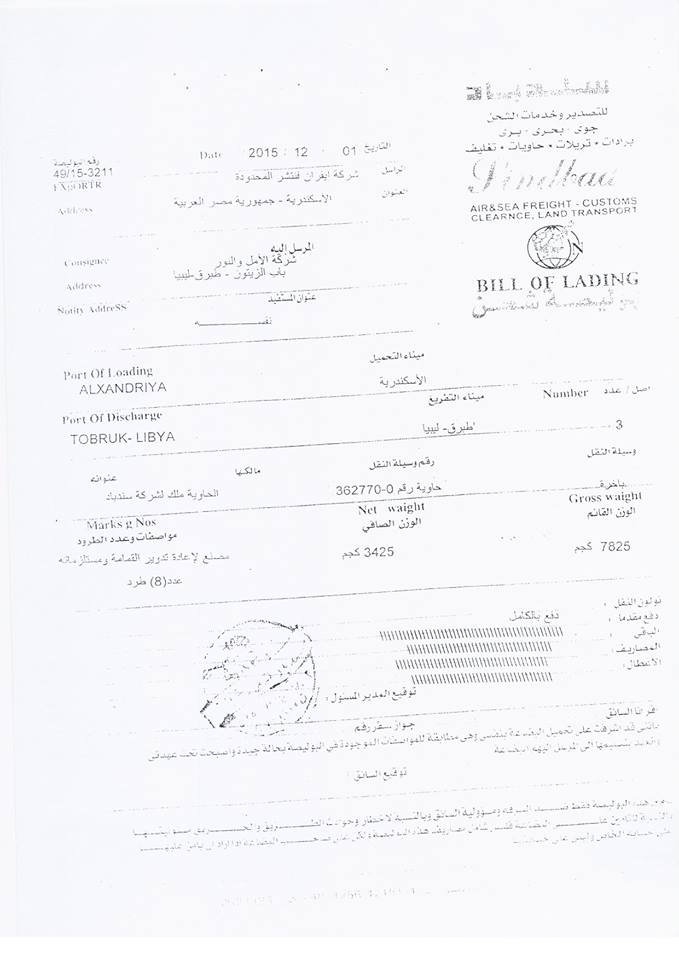 للتصدير وخدمات الشحن
جوى - بحرى - برى
برادات • تريلات • حاويات • تغليف
AIR&SEA FREIGHT - CUSTOMS
CLEARNCE, LAND TRANSPORT
BILL OF LADING
رقم البوليصة
49/15-3211
Date 2015 : 12 . 01 التاريخ
EXpORTR شركة ايفران فنتشر المحدودة الراسل
Address الأسكندرية - جمهورية مصر العربية العنوان
المرسل إليه
Consignee شركة الأمل والنور
Address باب الزيتون - طبرق-ليبيا
Notity AddreSS عنوان المستفيد
نفسه
Port Of Loading ميناء التحميل
ALXANDRIYA الأسكندرية
Port Of Discharge ميناء التفريغ Number اصل / عدد
TOBRUK- LIBYA طبرق- ليبيا 3
عنوانه مالكها رقم وسيلة النقل وسيلة النقل
الحاوية ملك لشركة سندباد حاوية رقم 0-362770 باخرة
Marks g Nos Net waight Gross waight
مواصفات وعدد الطرود الوزن الصافي الوزن القائم
مصنع لإعادة تدوير القمامة ومستلزماته 3425 كجم 7825 كجم
عدد(8) طرد
نولون النقل :
دفع مقدما : دفع بالكامل
الباقي :
المصاريف :
الاعطال :
توقيع المدير المسئول :
السائق
جواز سفر رقم
قد اشرفت على تحميل البضاعة بنفسي وهى مطابقة للمواصفات الموجودة في البوليصة بحالة جيدة واصبحت تحت عهدتى
توقيع السائق :